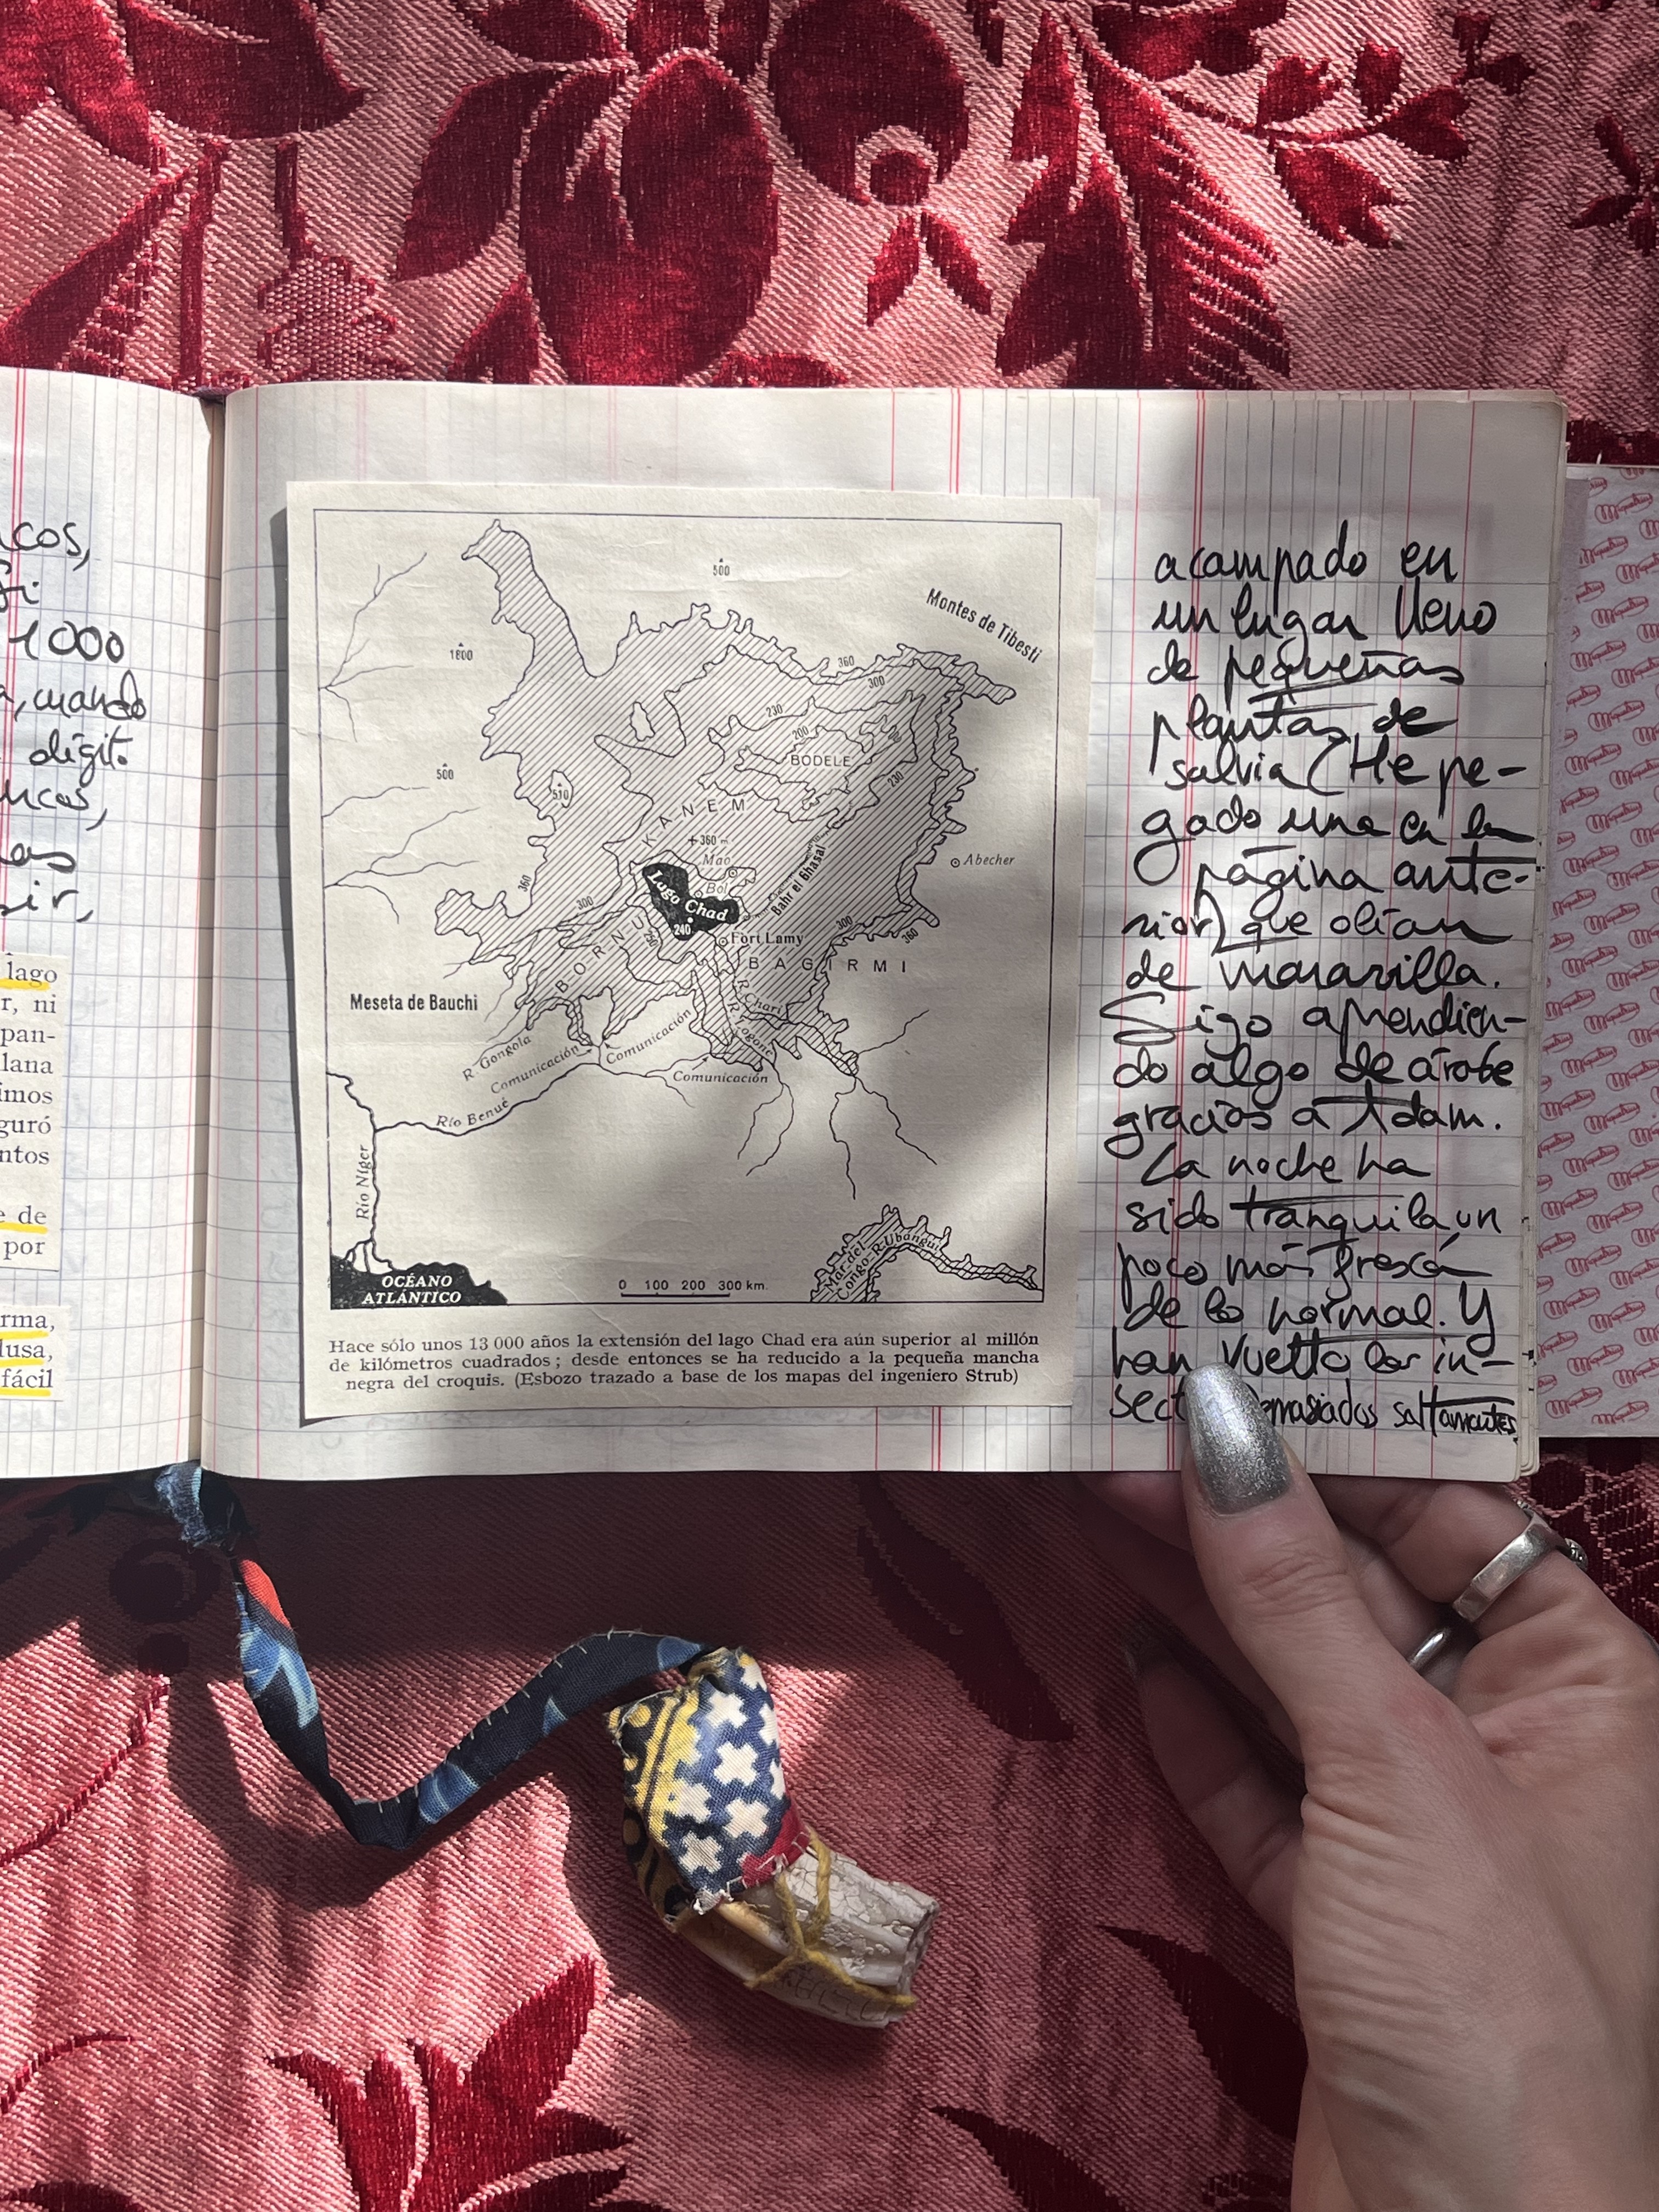 cos,
1000
, cuando
dígito
ancos,
lago
r, ni
pan-
lana
imos
guró
ntos
e de
por
rma,
lusa,
fácil
500
Montes de Tibesti
1800
360
300
230
200
500
BODELE
510
230
KANEM
+360 m
Mao
Abecher
Bol
Bahr el Ghasal
360
Lago Chad
300
240
300
360
Fort Lamy
BORNU
BAGIRMI
Meseta de Bauchi
R. Chari
R. Logone
R. Gongola
Comunicación
Comunicación
Comunicación
Río Benué
Río Níger
Mar del
Congo-R-Ubangui
OCÉANO
ATLÁNTICO
0 100 200 300 km.
Hace sólo unos 13 000 años la extensión del lago Chad era aún superior al millón
de kilómetros cuadrados; desde entonces se ha reducido a la pequeña mancha
negra del croquis. (Esbozo trazado a base de los mapas del ingeniero Strub)
acampado en
un lugar lleno
de pequeñas
plantas de
salvia (He pe-
gado una en la
página ante-
rior) que olían
de maravilla.
Sigo aprendien-
do algo de árabe
gracias a Adam.
La noche ha
sido tranquila un
poco más fresca
de lo normal. Y
han vuelto los in-
sect demasiados saltamontes.